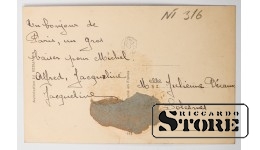 Ni 316
Un bonjour de
Paris, un gros
baiser pour Michel
Alfred, Jacqueline
Jacqueline
Mlle Julienne
RICCARDO
STORE